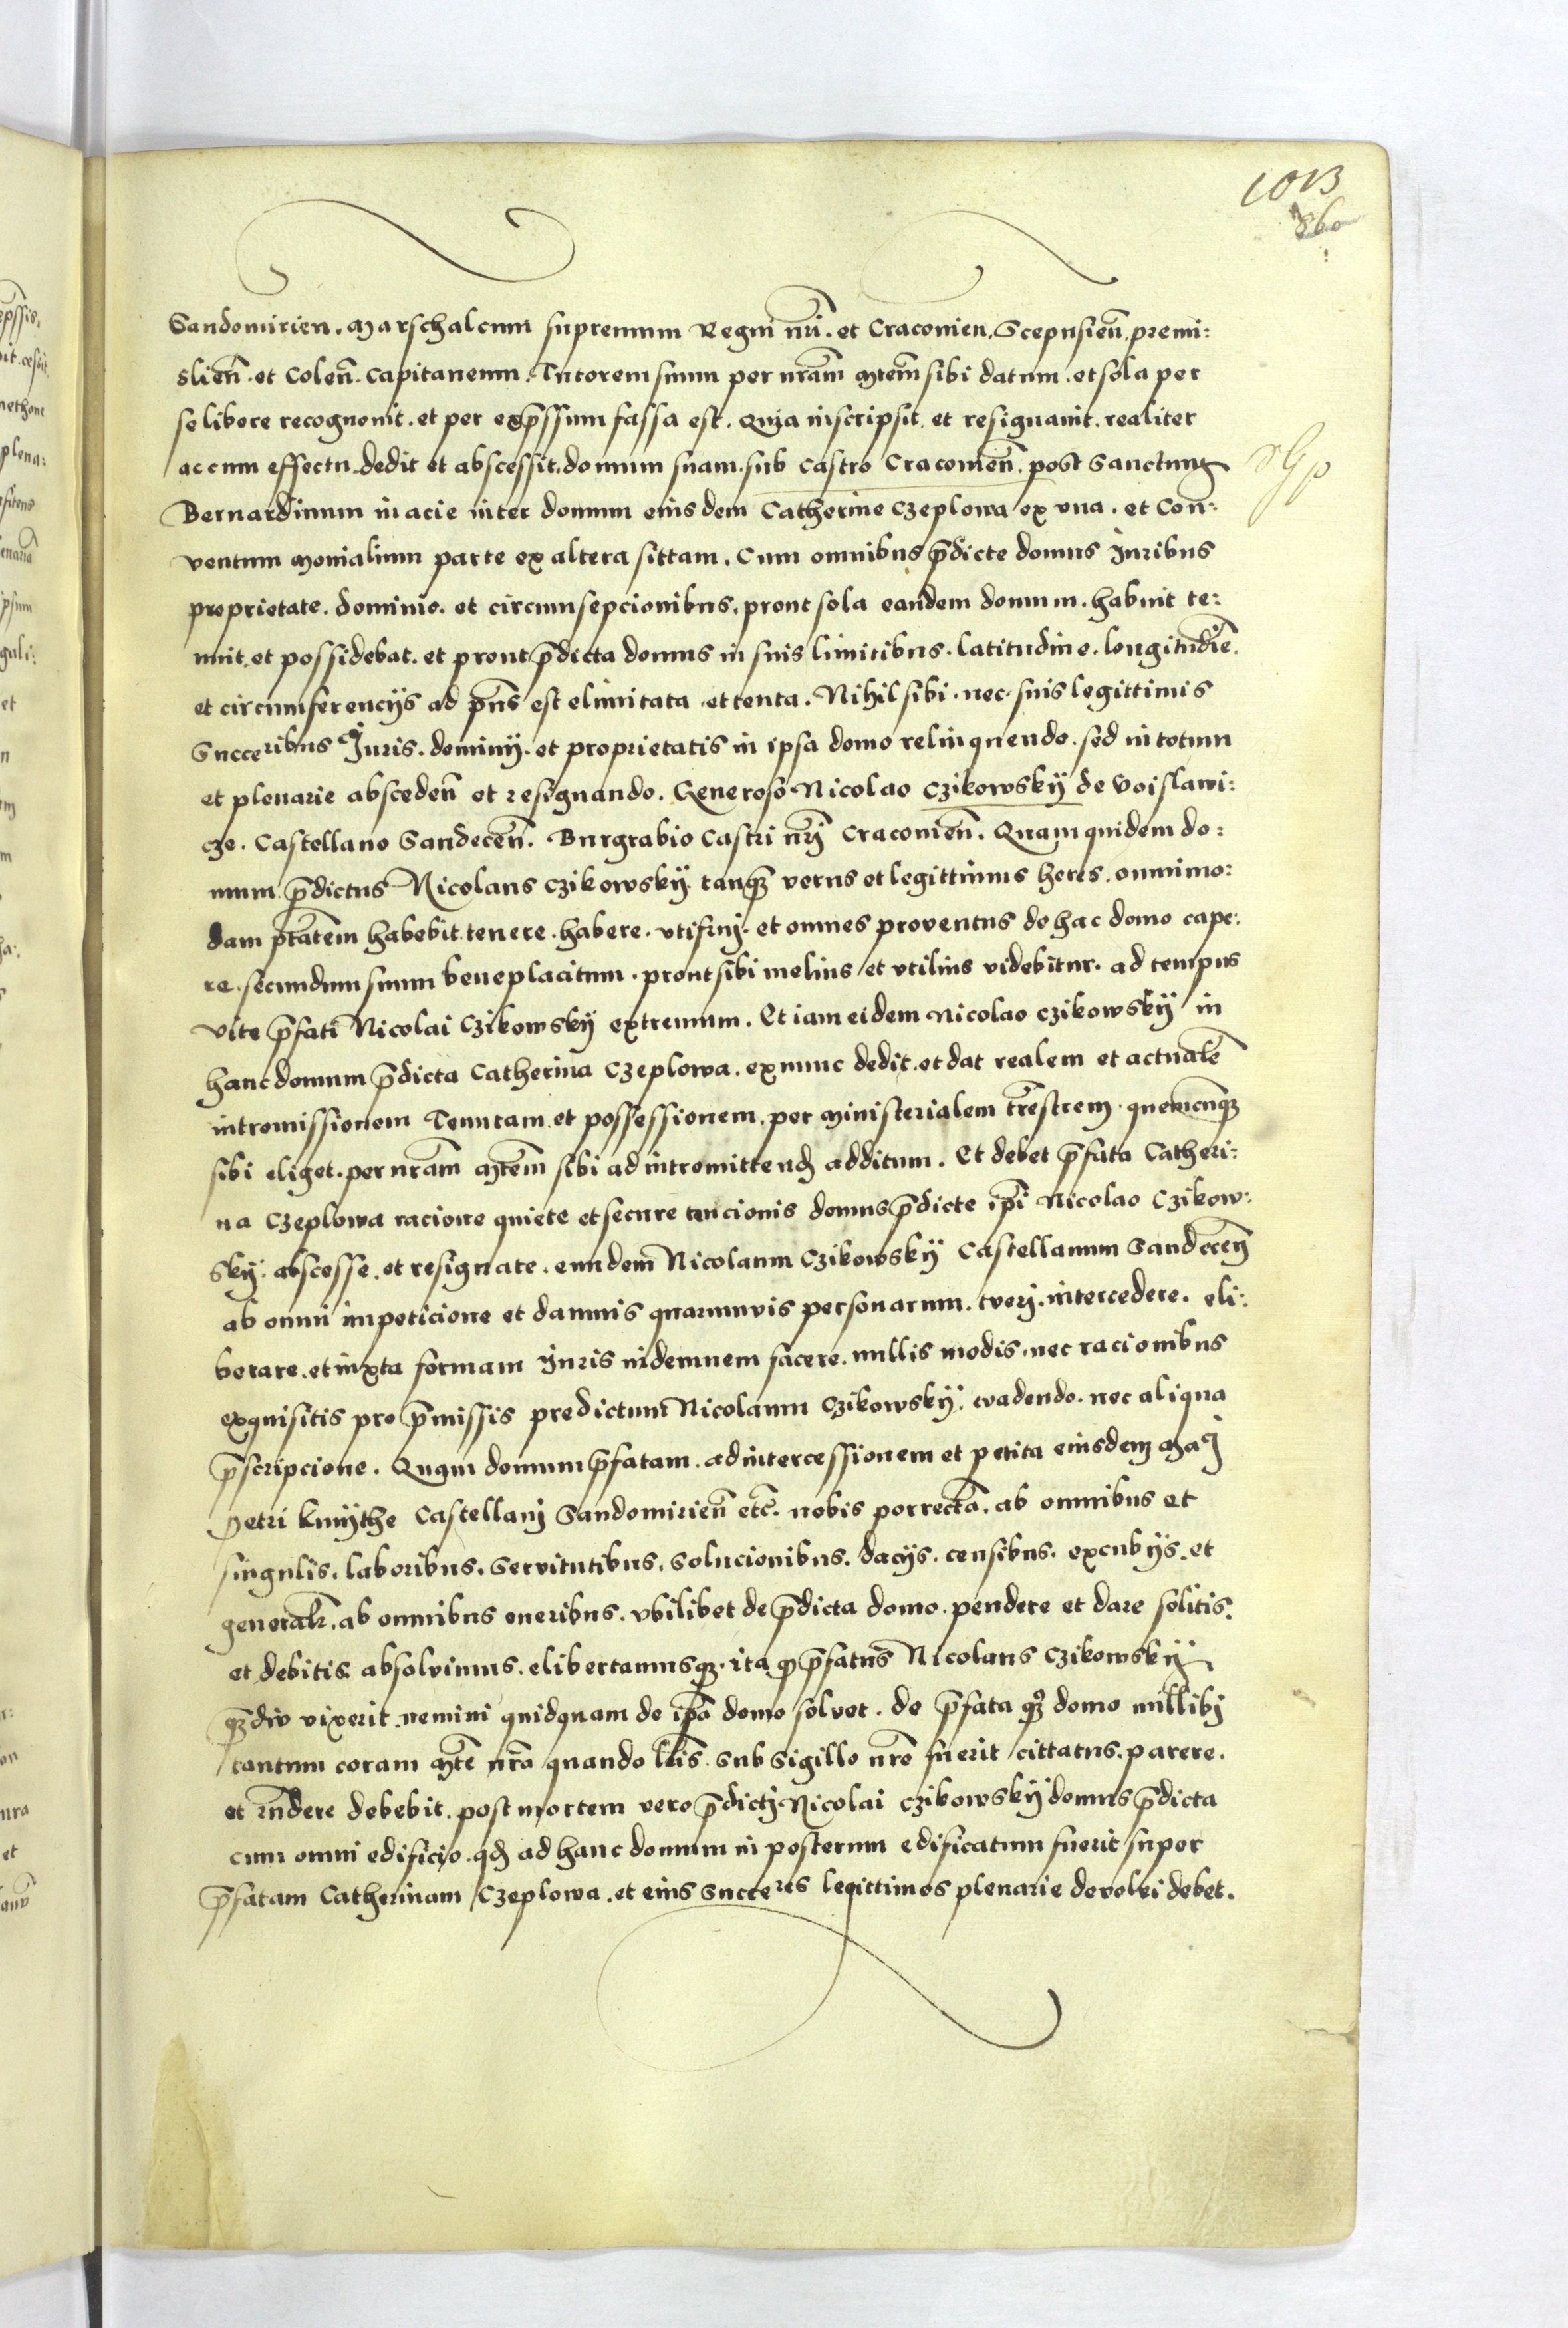 1013
860
Sandomirien. Marschalcum supremum Regni nri. et Cracovien. Scepusien. premi:
slien. et Colen. Capitaneum. Tutorem suum per nram mtem sibi datum. et sola per
se libere recognovit. et per expssum fassa est. Quia inscripsit. et resignavit. realiter
ac cum effectu dedit et abscessit. domum suam. sub Castro Cracovien. post Sanctum
Bernardinum in acie inter domum eiusdem Catherine Czeplowa ex vna. et Con:
ventum monialium parte ex altera sittam. Cum omnibus pdicte domus Iuribus
proprietate. dominio. et circumsepcionibus. prout sola eandem domum. habuit te:
nuit. et possidebat. et prout pdicta domus in suis limitibus. latitudine. longitudie.
et circumferencijs ad pns est elimitata. et tenta. Nihil sibi. nec. suis legittimis
Succeribus Iuris. dominij. et proprietatis in ipsa domo relinquendo. sed in totum
et plenarie absceden et resignando. Generoso Nicolao Czikowskÿ de Voislawi:
cze. Castellano Sandecen. Burgrabio Castri nrj Cracovien. Quam quidem do:
mum pdictus Nicolaus Czikowskÿ. tanqz verus et legittimus heres. omnimo:
dam ptatem habebit. tenere. habere. vtifruj. et omnes proventus de hac domo cape:
re. secundum suum beneplacitum. prout sibi melius et vtilius videbitur. ad tempus
vite pfati Nicolai Czikowskÿ extremum. Et iam eidem Nicolao Czikowskÿ in
hanc domum pdicta Catherina Czeplowa. ex nunc dedit. et dat realem et actuale
intromissionem Tenutam. et possessionem. per ministerialem trestrem. quemcunqz
sibi eliget. per nram mtem sibi ad intromittend additum. Et debet pfata Catheri:
na Czeplowa racione quiete et secure tencionis domus pdicte ipi Nicolao Czikow:
skÿ. abscesse. et resignate. eundem Nicolaum Czikowskÿ Castellanum Sandecen
ab omni impeticione et damnis quarumvis personarum. tuerj. intercedere. eli:
berare. et iuxta formam Iuris indemnem facere. nullis modis. nec racionibus
exquisitis pro pmissis predictum Nicolaum Czikowskÿ. evadendo. nec aliqua
pscripcione. Quam domum pfatam. ad intercessionem et petita eiusdem Maci
Petri kmÿthe Castellanj Sandomirien etc. nobis porrecta. ab omnibus et
singulis. laboribus. Servitutibus. Solucionibus. dacijs. censibus. excubijs. et
generalr. ab omnibus oneribus. vbilibet de pdicta domo. pendere et dare solitis.
et debitis. absolvimus. elibertamusqz. ita q pfatus Nicolaus Czikowskÿ.
qzdiv vixerit. nemini quidquam de ipa domo solvet. de pfata qz domo nullibj
tantum coram mte nra quando lris. sub Sigillo nro fuerit cittatus. parere.
et rndere debebit. post mortem vero pdictj Nicolai Czikowskÿ domus pdicta
cum omni edificio. qd ad hanc domum in posterum edificatum fuerit super
pfatam Catherinam Czeplowa. et eius Succeres legittimos plenarie devolvi debet.